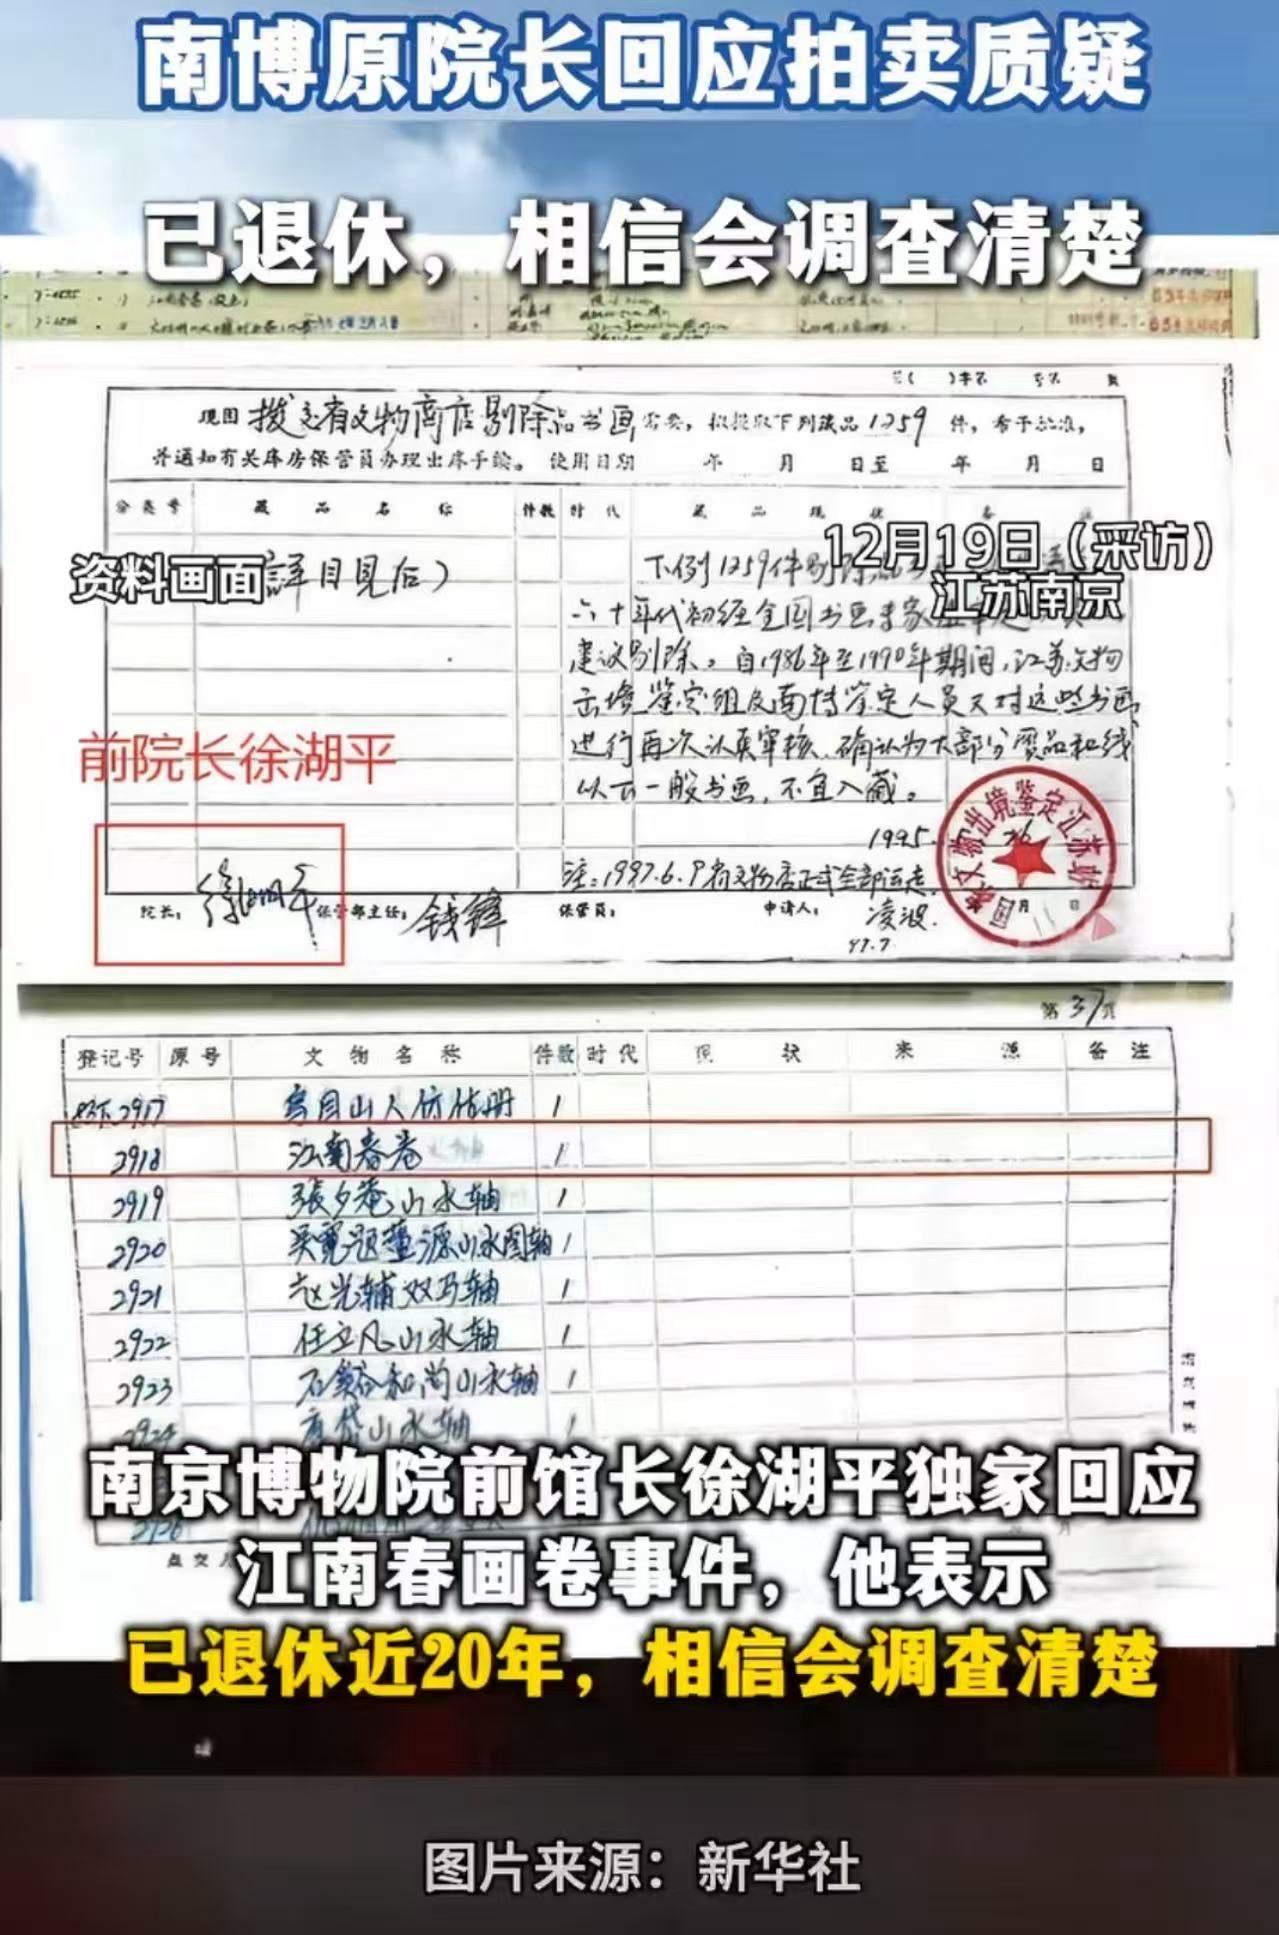 南博原院长回应拍卖质疑
已退休，相信会调查清楚
现因 拨交省文物商店剔除品书画 需要，拟提取下列藏品 1259 件，希予批准，
并通知有关库房保管员办理出库手续。 使用日期 年 月 日至 年 月 日
分类号 藏品名称 件数 时代 藏品现状
12月19日（采访）
江苏南京
资料画面
（详目见后）
下例1259件剔除
六十年代初经全国书画专家
建议剔除。自1986年至1990年期间，江苏文物
出境鉴定组及南博鉴定人员又对这些书画
进行再次认真审核、确认为大部分赝品和线
以下一般书画，不宜入藏。
1995.
注：1997.6.9省文物店正式全部运走。
前院长徐湖平
院长： 徐湖平 保管部主任： 钱锋 保管员： 申请人： 凌波
97.7
文物出境鉴定江苏站
第 37 页
登记号 原号 文物名称 件数 时代 现状 来源 备注
2917 1
2918 江南春卷 1
2919 张夕庵山水轴 1
2920 吴宽题董源山水图轴 1
2921 赵光辅双马轴 1
2922 任立凡山水轴 1
2923 石谿和尚山水轴 1
2924 山水轴
点交
南京博物院前馆长徐湖平独家回应
江南春画卷事件，他表示
已退休近20年，相信会调查清楚
图片来源：新华社